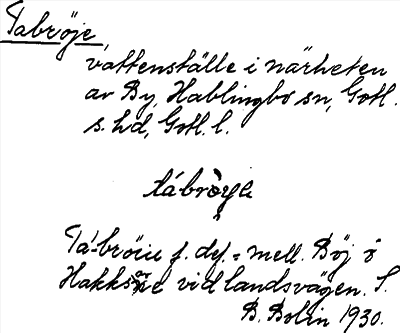 Tabröje,
vattenställe i närheten
av By, Hablingbo sn, Gotl.
s. hd, Gotl. l.
Ta-bröie f. dyf. = mell. Böj o
vid landsvägen. S.
B. Bolin 1930.